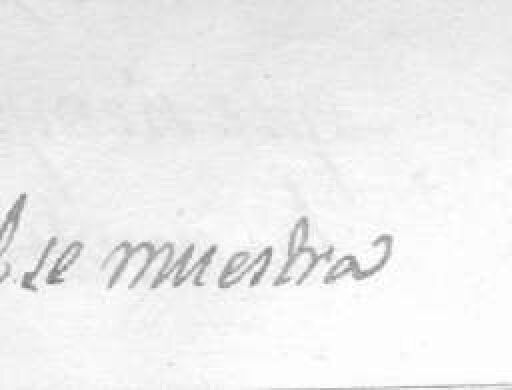 se muestra